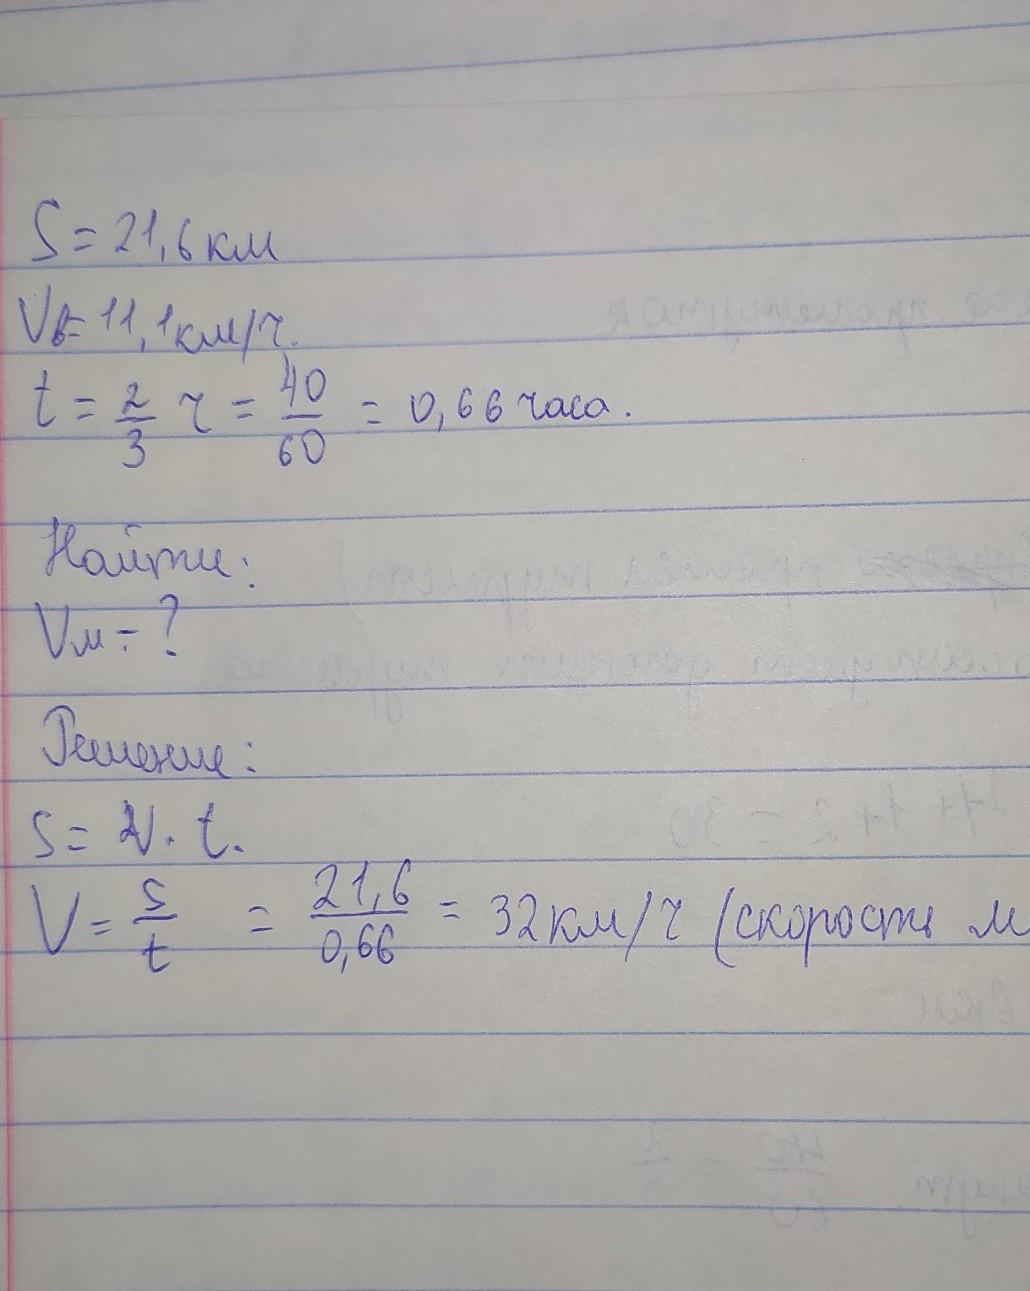 S = 21,6 км
Vв = 11,1 км/ч.
t = 2/3 ч = 40/60 = 0,66 часа.
Найти:
Vм = ?
Решение:
S = V · t.
V = S/t = 21,6/0,66 = 32 км/ч (скорость м